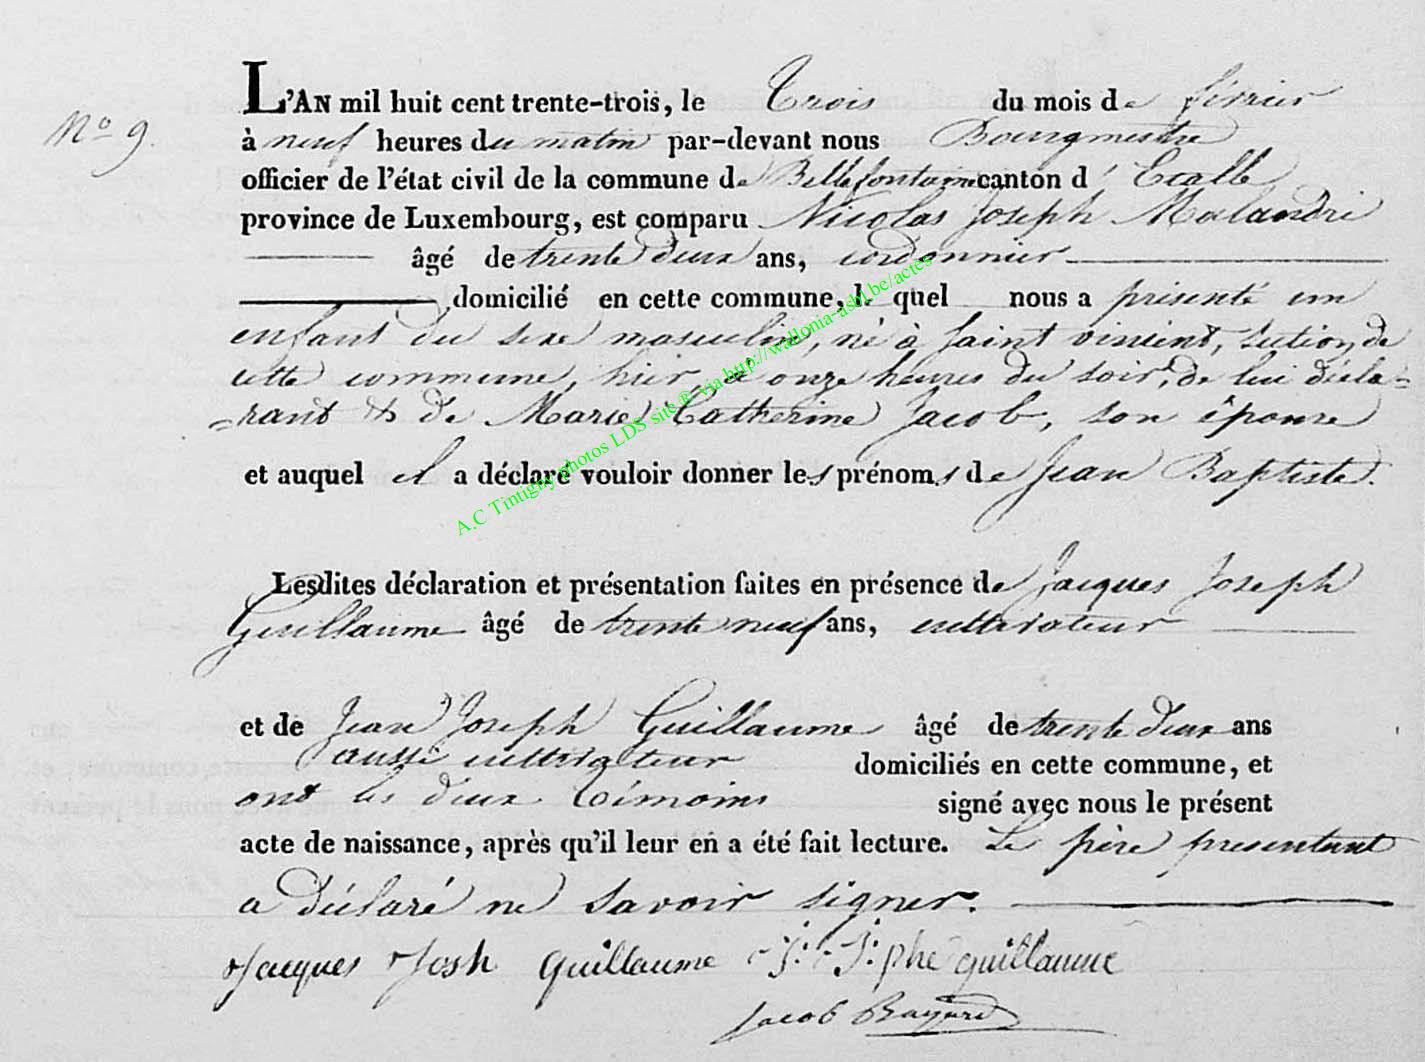 L'AN mil huit cent trente-trois, le Trois du mois de février
No 9.
à neuf heures du matin par-devant nous Bourgmestre
officier de l'état civil de la commune de Bellefontaine canton d'Etalle
province de Luxembourg, est comparu Nicolas Joseph Malandri
âgé de trente deux ans, cordonnier
domicilié en cette commune, le quel nous a présenté un
enfant du sexe masculin, né à Saint vincent, section de
cette commune, hier, à onze heures du soir, de lui décla-
-rant & de Marie Catherine Jacob, son épouse
et auquel il a déclaré vouloir donner les prénoms de Jean Baptiste.
A.C Tintigny photos LDS site ® via http://wallonia-asbl.be/actes
Lesdites déclaration et présentation faites en présence de Jacques Joseph
Guillaume âgé de trente neuf ans, cultivateur
et de Jean Joseph Guillaume âgé de trente deux ans
aussi cultivateur domiciliés en cette commune, et
ont les deux témoins signé avec nous le présent
acte de naissance, après qu'il leur en a été fait lecture. Le père présentant
a déclaré ne savoir signer.
Jacques Josh guillaume J: J:phe guillaume
Jacob